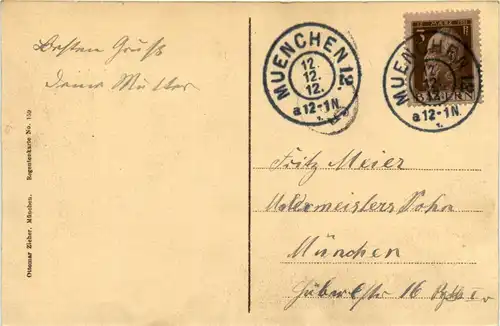 Besten Gruß
deine Mutter
Ottmar Zieher, München. Regentenkarte No. 159
MUENCHEN 12.
12.
12.
12.
a 12-1 N.
MUENCHEN
a 12-1 N.
Fritz Meier
Malermeisters Sohn
München
16